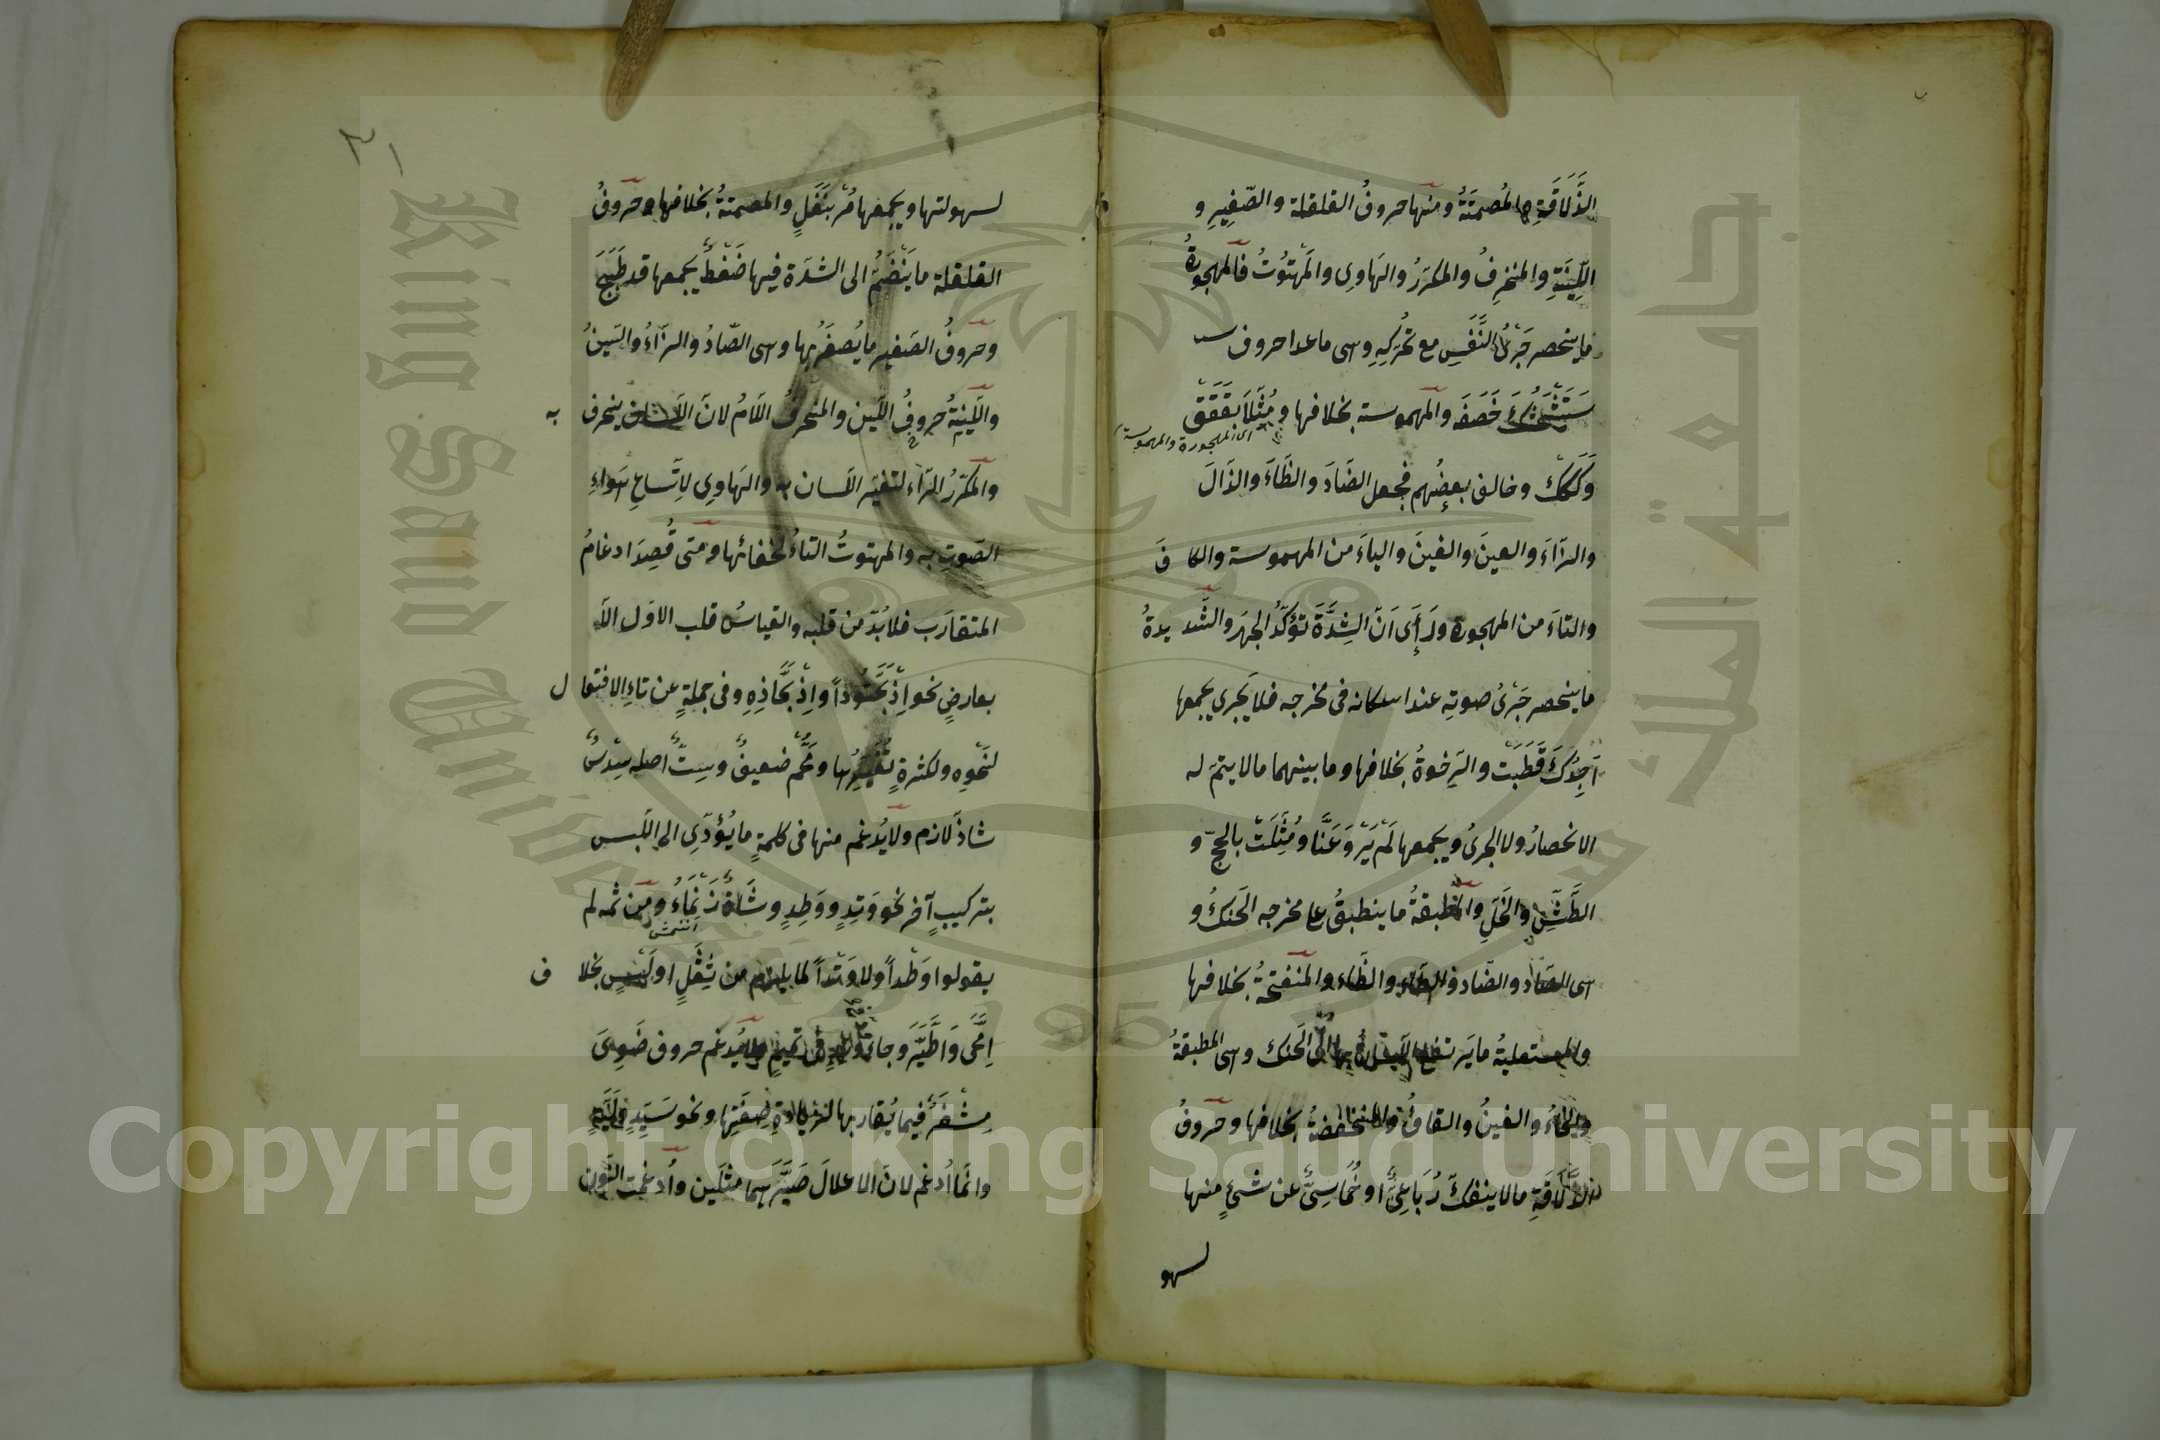 الذَّلَاقَةِ والمُصمَتَةُ ومنها حروفُ القلقلة والصّفِيرِ و
اللّينَةِ والمنحرِفُ والمكرّرُ والهاوِى والمَهتُوتُ فالمهجورةُ
ما ينحصر جَرْىُ النَّفَسِ مع تَحَرُّكِهِ وهى ماعدا حروف
سَتَشْحَثُكَ خَصَفَه والمهموسة بخلافها ومُثِّلَا بقَقَقْ
اى المجهورة والمهموسة
وَكَكَكْ وخالف بعضُهم فجعل الضّادَ والظّاءَ والذّالَ
والزّاءَ والعينَ والغينَ والياءَ من المهموسة والكافَ
والتاءَ من المهجورة ورَأَى اَنّ الشِدَّةَ تؤكّدُ الجهرَ والشّديدةُ
ما ينحصر جَرْىُ صوتِه عند اسكانه فى مخرجه فلا يَجرِي يجمعها
اَجِدُكَ قَطَبْتَ والرِخوةُ بخلافها وما بينهما مالا يتمّ له
الانحصارُ ولا الجرىُ ويجمعها لَمْ يَرْوِ عَنَّا ومُثِّلَتْ بالحجّ و
الطَّشِّ والخَلِ والمطبقةُ ما ينطبقُ على مخرجه الحَنكُ و
هى الصّادُ والضّاد والطاء والظّاء والمنفتحةُ بخلافها
والمستعليةُ ما يَرتفع اللِسانُ بها الى الحَنك وهى المطبقةُ
والخاءُ والغينُ والقافُ والمنخفضةُ بخلافها وحروفُ
الذَّلَاقَةِ مالا ينفكّ رُبَاعِىٌّ او خُمَاسِىٌّ عن شئٍ منها
لسهو
٢١
لسهولتها ويجمعها مُرْ بنَفَلٍ والمصمتةُ بخلافها وحروفُ
القلقلة ما يَنْضَمُّ الى الشدّة فيها ضَغْطٌ يجمعها قد طَبَجَ
وحروفُ الصّفير ما يُصفَرُ بها وهى الصّادُ والزّاءُ والسّينُ
واللّينةُ حروفُ اللّين والمنحرفُ اللّامُ لانّ اللّسان ينحرف به
والمكرّرُ الرّاء لتغيّر اللّسان به والهَاوِى لِاتّساعِ هَواءِ
الصّوتِ به والمهتوتُ التاءُ لخفائها ومتى قُصِدَ ادغامُ
المتقارَب فلا بُدّ من قلبه والقياسُ قلب الاوّل الّا
بعارضٍ نحو اِذْبَحَّتُوداً واِذْبَحَّاذِهِ وفى جملةٍ عن تاءِ الافتعال
لنَحْوِه ولكثرةِ تَغَيُّرِها ومَحُّمْ ضعيفٌ وسِتٌّ اصله سِدْسٌ
شاذّ لازم ولا يُدغم منها فى كلمةٍ ما يُؤدّى الى اللَبس
بتركيبٍ آخر نحو وَتِدٍ ووَطِدٍ وشَاةٌ زَنْمَاءُ ومن ثمه لم
يقولوا وَطْداً ولا وَتْداً لما يلزم من ثِقَلٍ او لَبْسٍ بخلاف
اِمَّحَى وَاطَّيَّرَ وجاء وَدٌّ فى تميمٍ ولا يُدغم حروف ضَوِىَ
مِشْفَرٌ فيما يُقاربها لزيادةِ صِفَتِها ونحو سَيِّدٍ ولَيَّةٍ
وانّما اُدغم لانّ الاعلالَ صَيَّرَهما مثلَين واُدغمت النّون